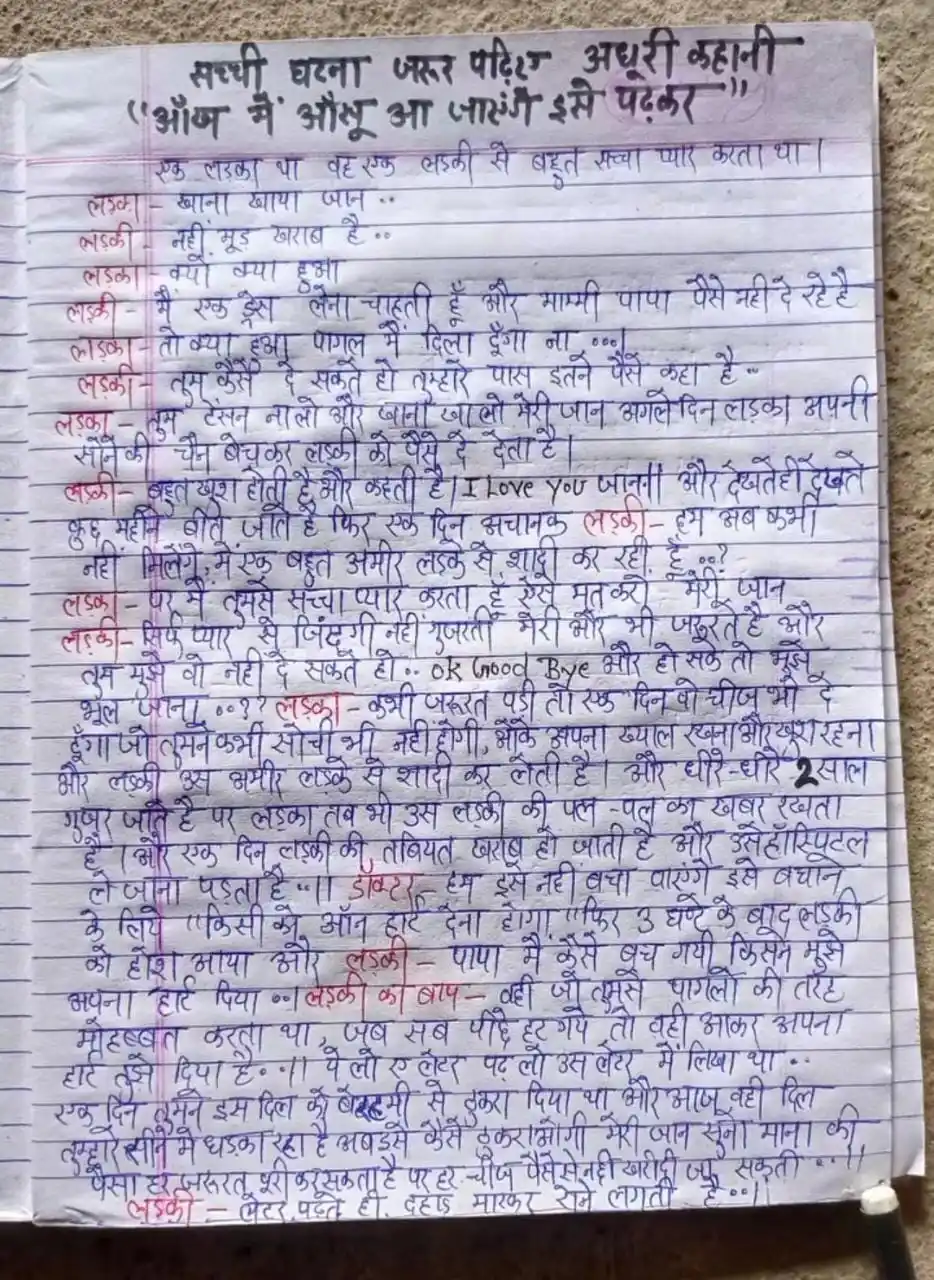 सच्ची घटना जरूर पढ़िए अधूरी कहानी
"आँख में आँसू आ जाएंगे इसे पढ़कर"
एक लड़का था वह एक लड़की से बहुत सच्चा प्यार करता था।
लड़का - खाना खाया जान ..
लड़की - नहीं मूड खराब है ..
लड़का - क्यों क्या हुआ
लड़की - मैं एक ड्रेस लेना चाहती हूँ और माम्मी पापा पैसे नही दे रहे है
लड़का - तो क्या हुआ पागल मैं दिला दूँगा ना ...।
लड़की - तुम कैसे दे सकते हो तुम्हारे पास इतने पैसे कहा है ..
लड़का - तुम टेंसन ना लो और खाना खा लो मेरी जान अगले दिन लड़का अपनी
सोने की चैन बेचकर लड़की को पैसे दे देता है।
लड़की - बहुत खुश होती है और कहती है। I Love You जानना और देखते ही देखते
कुछ महीने बीत जाते है फिर एक दिन अचानक लड़की - हम अब कभी
नहीं मिलेंगे, में एक बहुत अमीर लड़के से शादी कर रही हूँ ..?
लड़का - पर मैं तुमसे सच्चा प्यार करता हूँ ऐसे मत करो मेरी जान
लड़की - सिर्फ प्यार से जिंदगी नहीं गुजरती मेरी और भी जरूरते है और
तुम मुझे वो नही दे सकते हो .. ok Good Bye और हो सके तो मुझे
भूल जाना ..?? लड़का - कभी जरूरत पड़ी तो एक दिन वो चीज भी दे
दूँगा जो तुमने कभी सोची भी नही होगी, ओके अपना ख्याल रखना और खुश रहना
और लड़की उस अमीर लड़के से शादी कर लेती है। और धीरे-धीरे 2 साल
गुजर जाते है पर लड़का तब भी उस लड़की की पल-पल का खबर रखता
है। और एक दिन लड़की की तबियत खराब हो जाती है और उसे हॉस्पिटल
ले जाना पड़ता है ..।। डॉक्टर - हम इसे नही बचा पाएंगे इसे बचाने
के लिये "किसी को ऑन हार्ट देना होगा" फिर 3 घण्टे के बाद लड़की
को होश आया और लड़की - पापा मै कैसे बच गयी किसने मुझे
अपना हार्ट दिया ..। लड़की का बाप - वही जो तुमसे पागलो की तरह
मोहब्बत करता था, जब सब पीछे हट गये तो वही आकर अपना
हार्ट तुझे दिया है ..।। ये लो ए लेटर पढ़ लो उस लेटर में लिखा था ..
एक दिन तुमने इस दिल को बेरहमी से ठुकरा दिया था और आज वही दिल
तुम्हारे सीने मे धड़का रहा है अब इसे कैसे ठुकराओगी मेरी जान सुनो माना की
पैसा हर जरूरत पूरी कर सकता है पर हर चीज पैसे से नही खरीदी जा सकती ..।।
लड़की - लेटर पढ़ते ही दहाड़ मारकर रोने लगती है ..।।